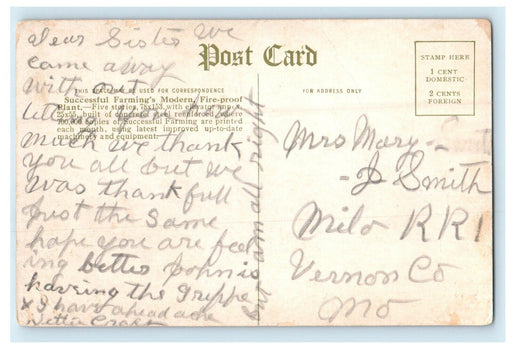 Post Card
THIS SPACE MAY BE USED FOR CORRESPONDENCE
FOR ADDRESS ONLY
STAMP HERE
1 CENT
DOMESTIC
2 CENTS
FOREIGN
Successful Farming's Modern, Fire-proof
Plant.—Five stories,
built of concrete, steel reinforced, where
of Successful Farming are printed
each month, using latest improved up-to-date
machinery and equipment.
Dear Sister we
came away
with out
letting you know
much we thank
you all but we
was thankfull
just the same
hope you are feel
ing better John is
haveing the Grippe
x I have ahead ache
Nettie
but am all right
Mrs Mary
J Smith
Milo RR1
Vernon Co
Mo